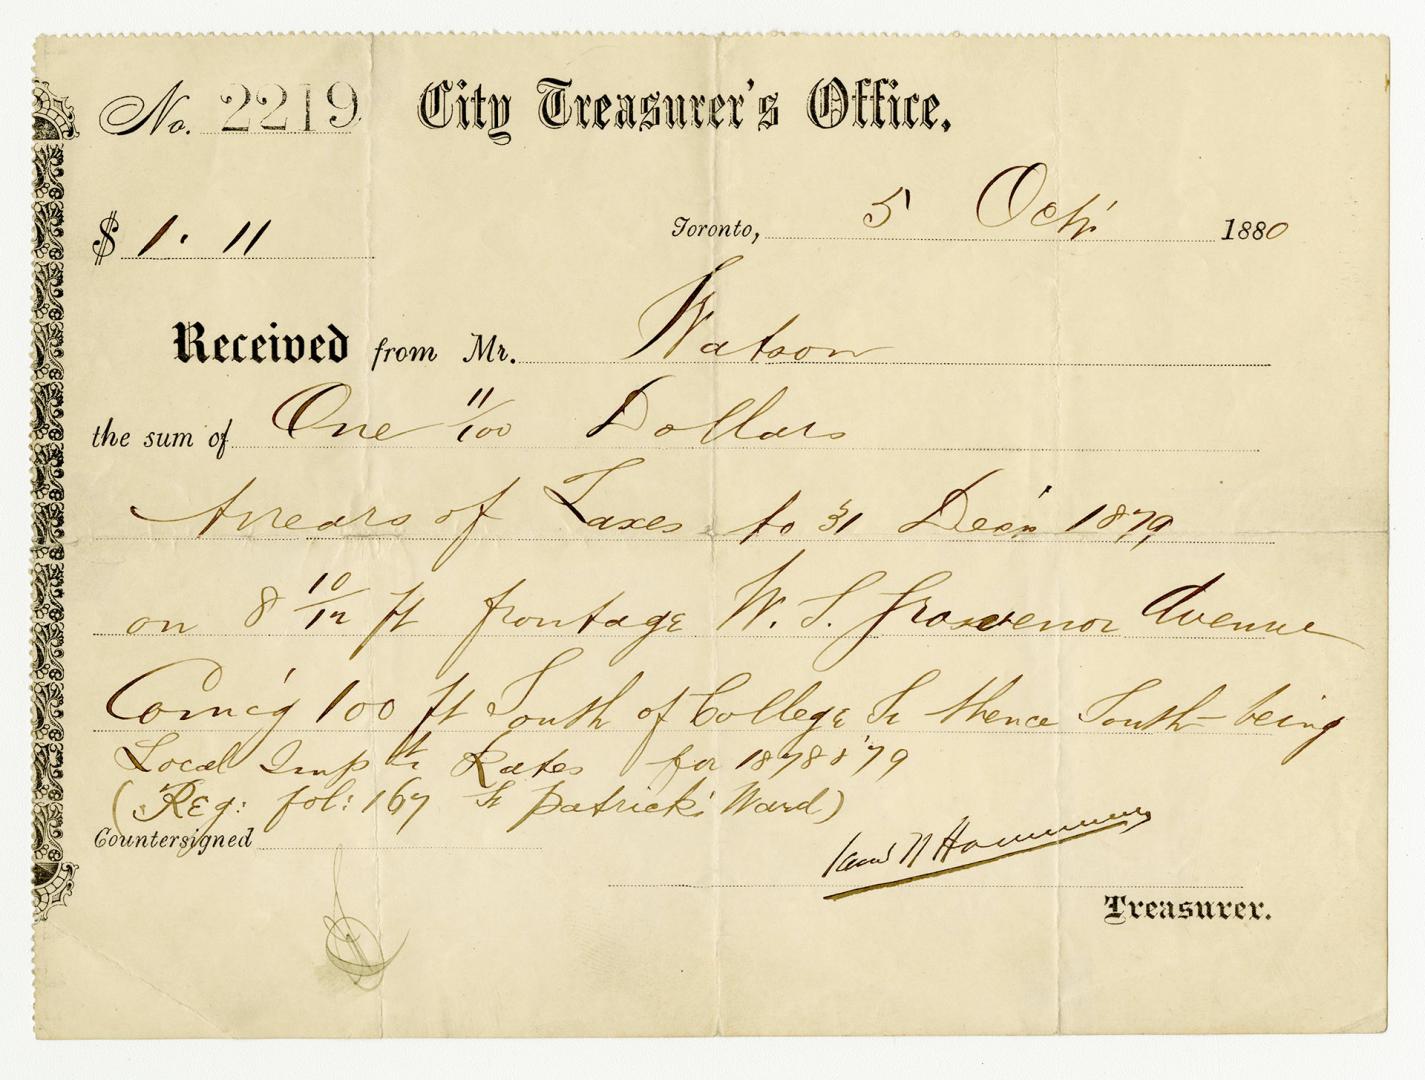 No. 2219 City Treasurer's Office.
$ 1. 11 Toronto, 5 Oct' 1880
Received from Mr. Watson
the sum of One 11/100 Dollars
Arrears of Taxes to 31 Dec'r 1879
on 8 10/12 ft frontage W. S. Grosvenor Avenue
Comc'g 100 ft South of College St thence South - being
Local Imp't Rates for 1878 & '79
(Reg: fol: 167 St Patrick's Ward)
Countersigned
Treasurer.